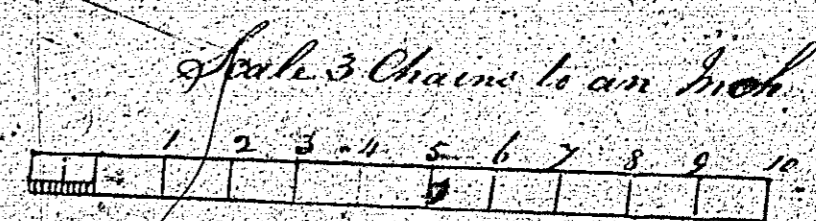 Scale 3 Chains to an Inch
1 2 3 4 5 6 7 8 9 10